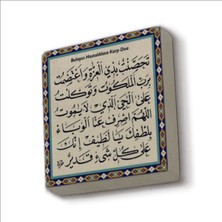 Bulaşıcı Hastalıklara Karşı Dua
تَحَصَّنْتُ بِذِي الْعِزَّةِ وَاعْتَصَمْتُ
بِرَبِّ الْمَلَكُوتِ وَتَوَكَّلْتُ
عَلَى الْحَيِّ الَّذِي لَا يَمُوتُ
اَللّٰهُمَّ اصْرِفْ عَنَّا الْوَبَاءَ
بِلُطْفِكَ يَا لَطِيفُ اِنَّكَ
عَلَى كُلِّ شَيْءٍ قَدِيرٌ